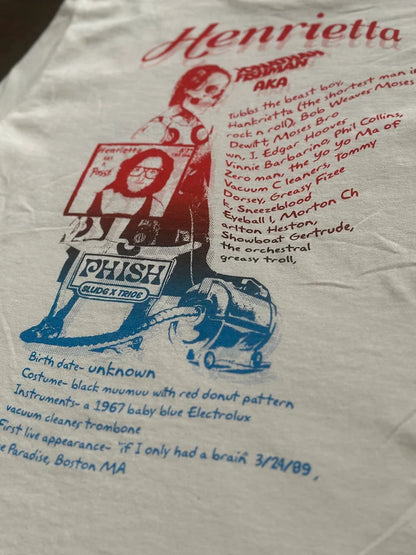 Henrietta
FISHMAN
AKA
Tubbs the beast boy,
Hankrietta (the shortest man in
rock n roll), Bob Weaves Moses
Dewitt, Moses Bro
wn, I. Edgar Hooves
Vinnie Barbarino, Phil Collins,
Zero man, the yo yo Ma of
Vacuum Cleaners, Tommy
Dorsey, Greasy Fizee
k, Sneezeblood
Eyeball 1, Morton Ch
arlton Heston,
Showboat Gertrude,
the orchestral
greasy troll,
Henrietta
PHISH
SLUDG X TRIDE
Birth date- unknown
Costume- black muumuu with red donut pattern
Instruments- a 1967 baby blue Electrolux
vacuum cleaner trombone
First live appearance- "if I only had a brain" 3/24/89,
Paradise, Boston MA